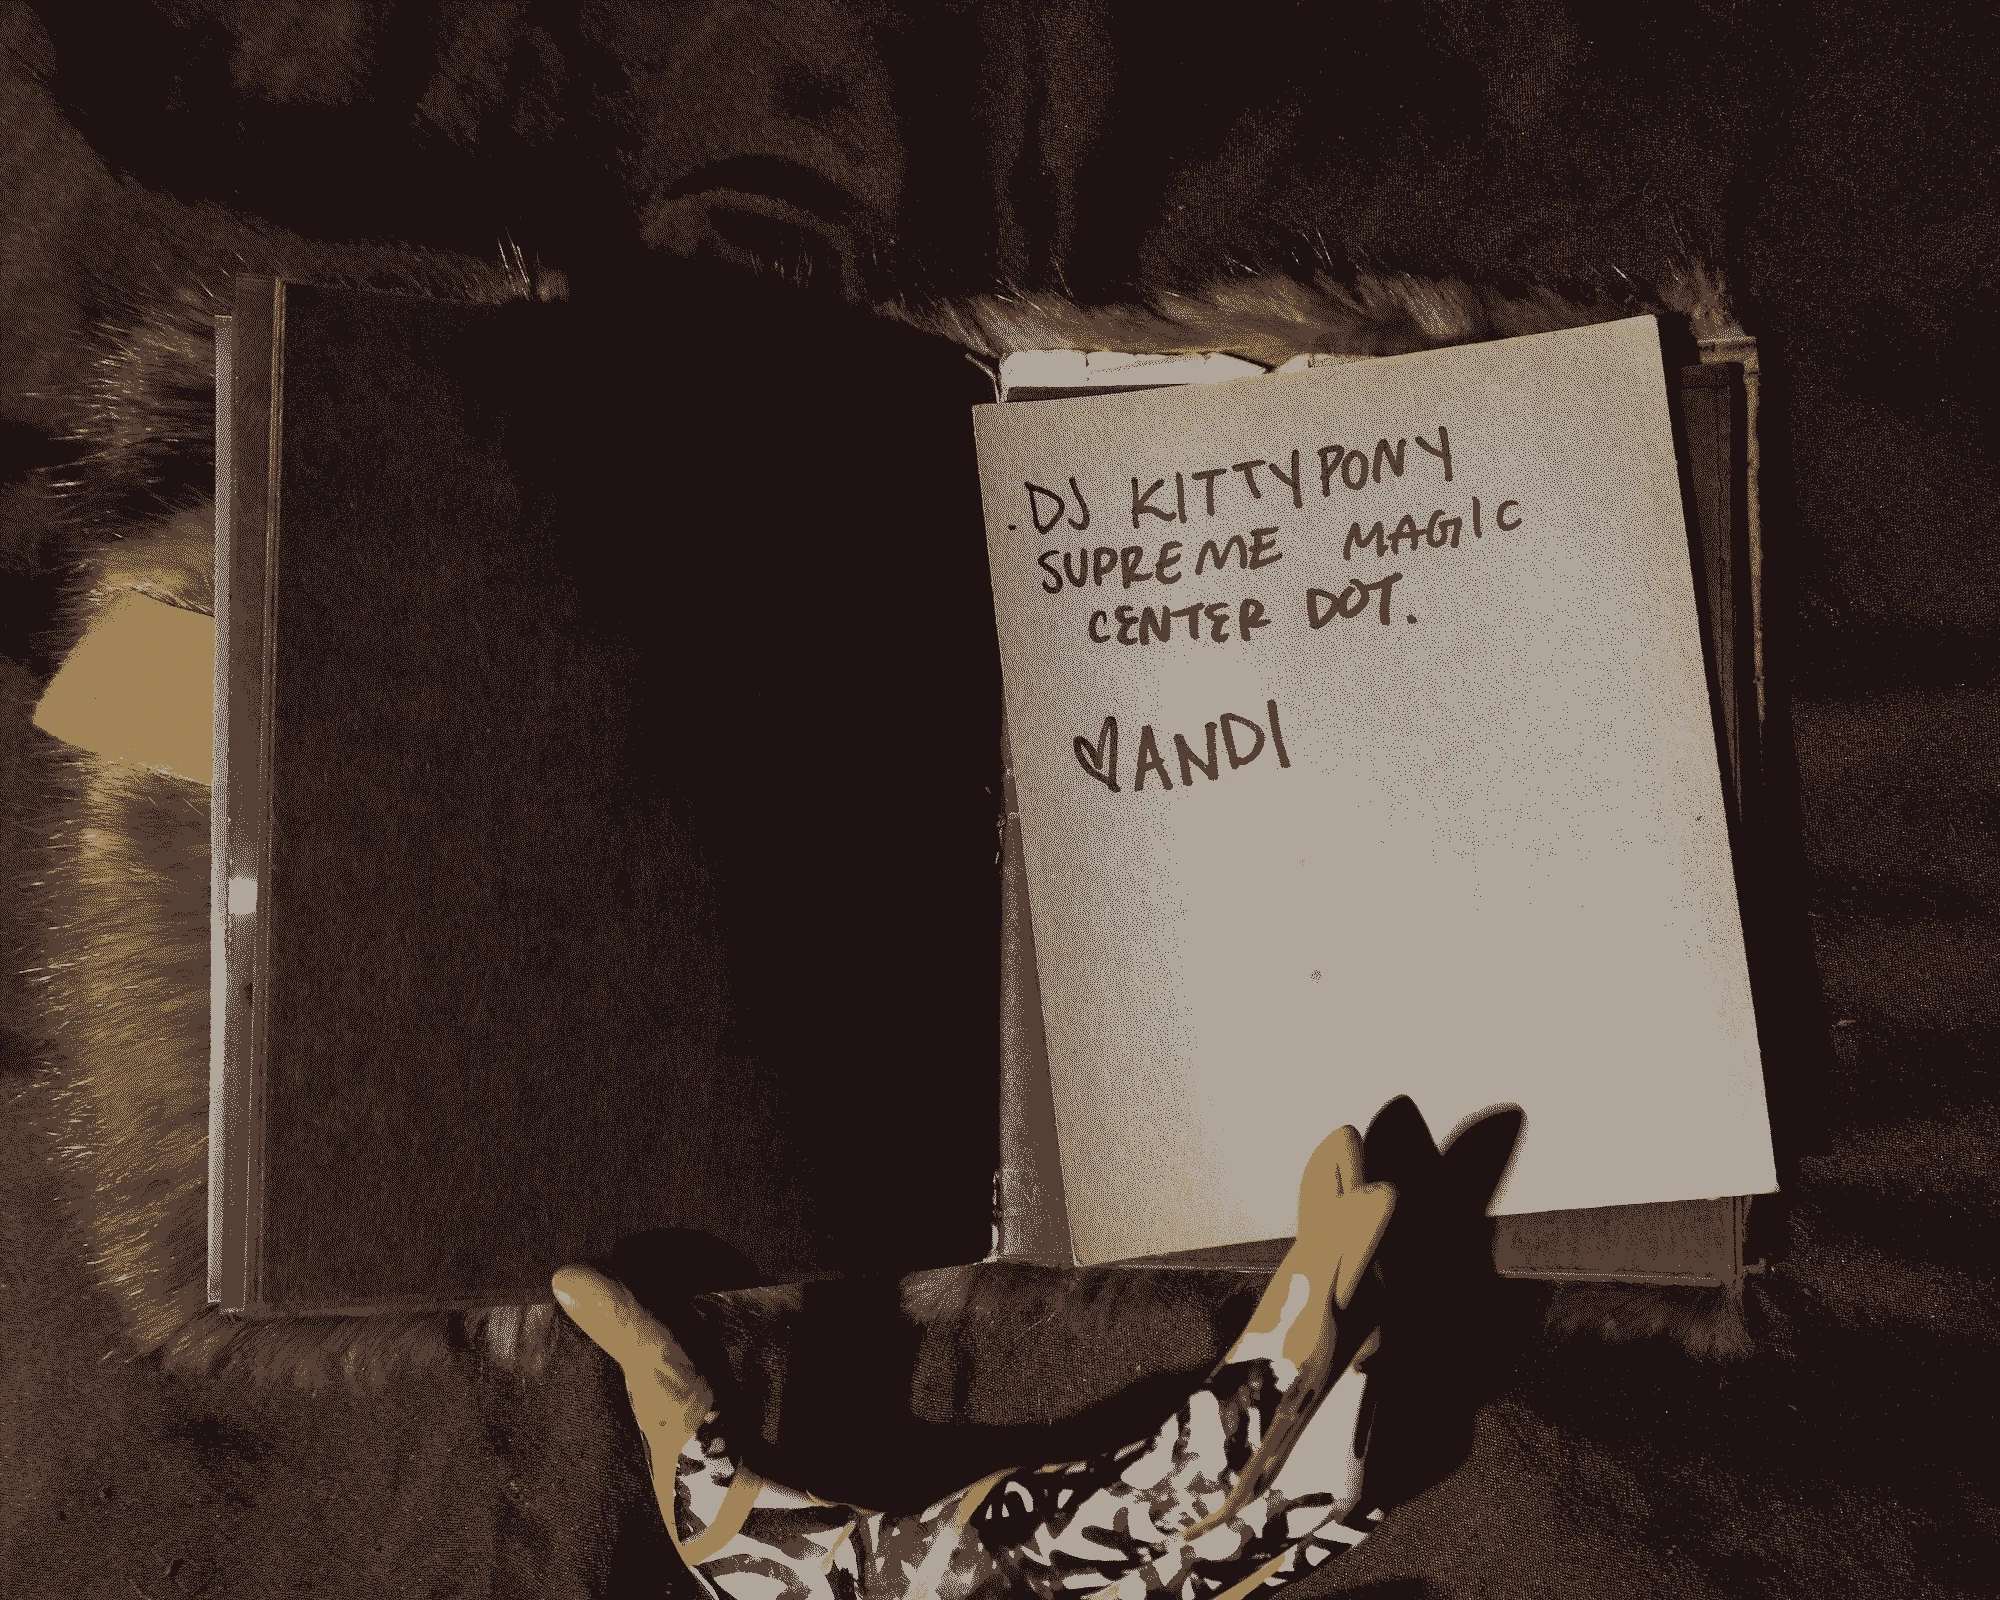 .DJ KITTYPONY
SUPREME MAGIC
CENTER DOT.
♡ANDI